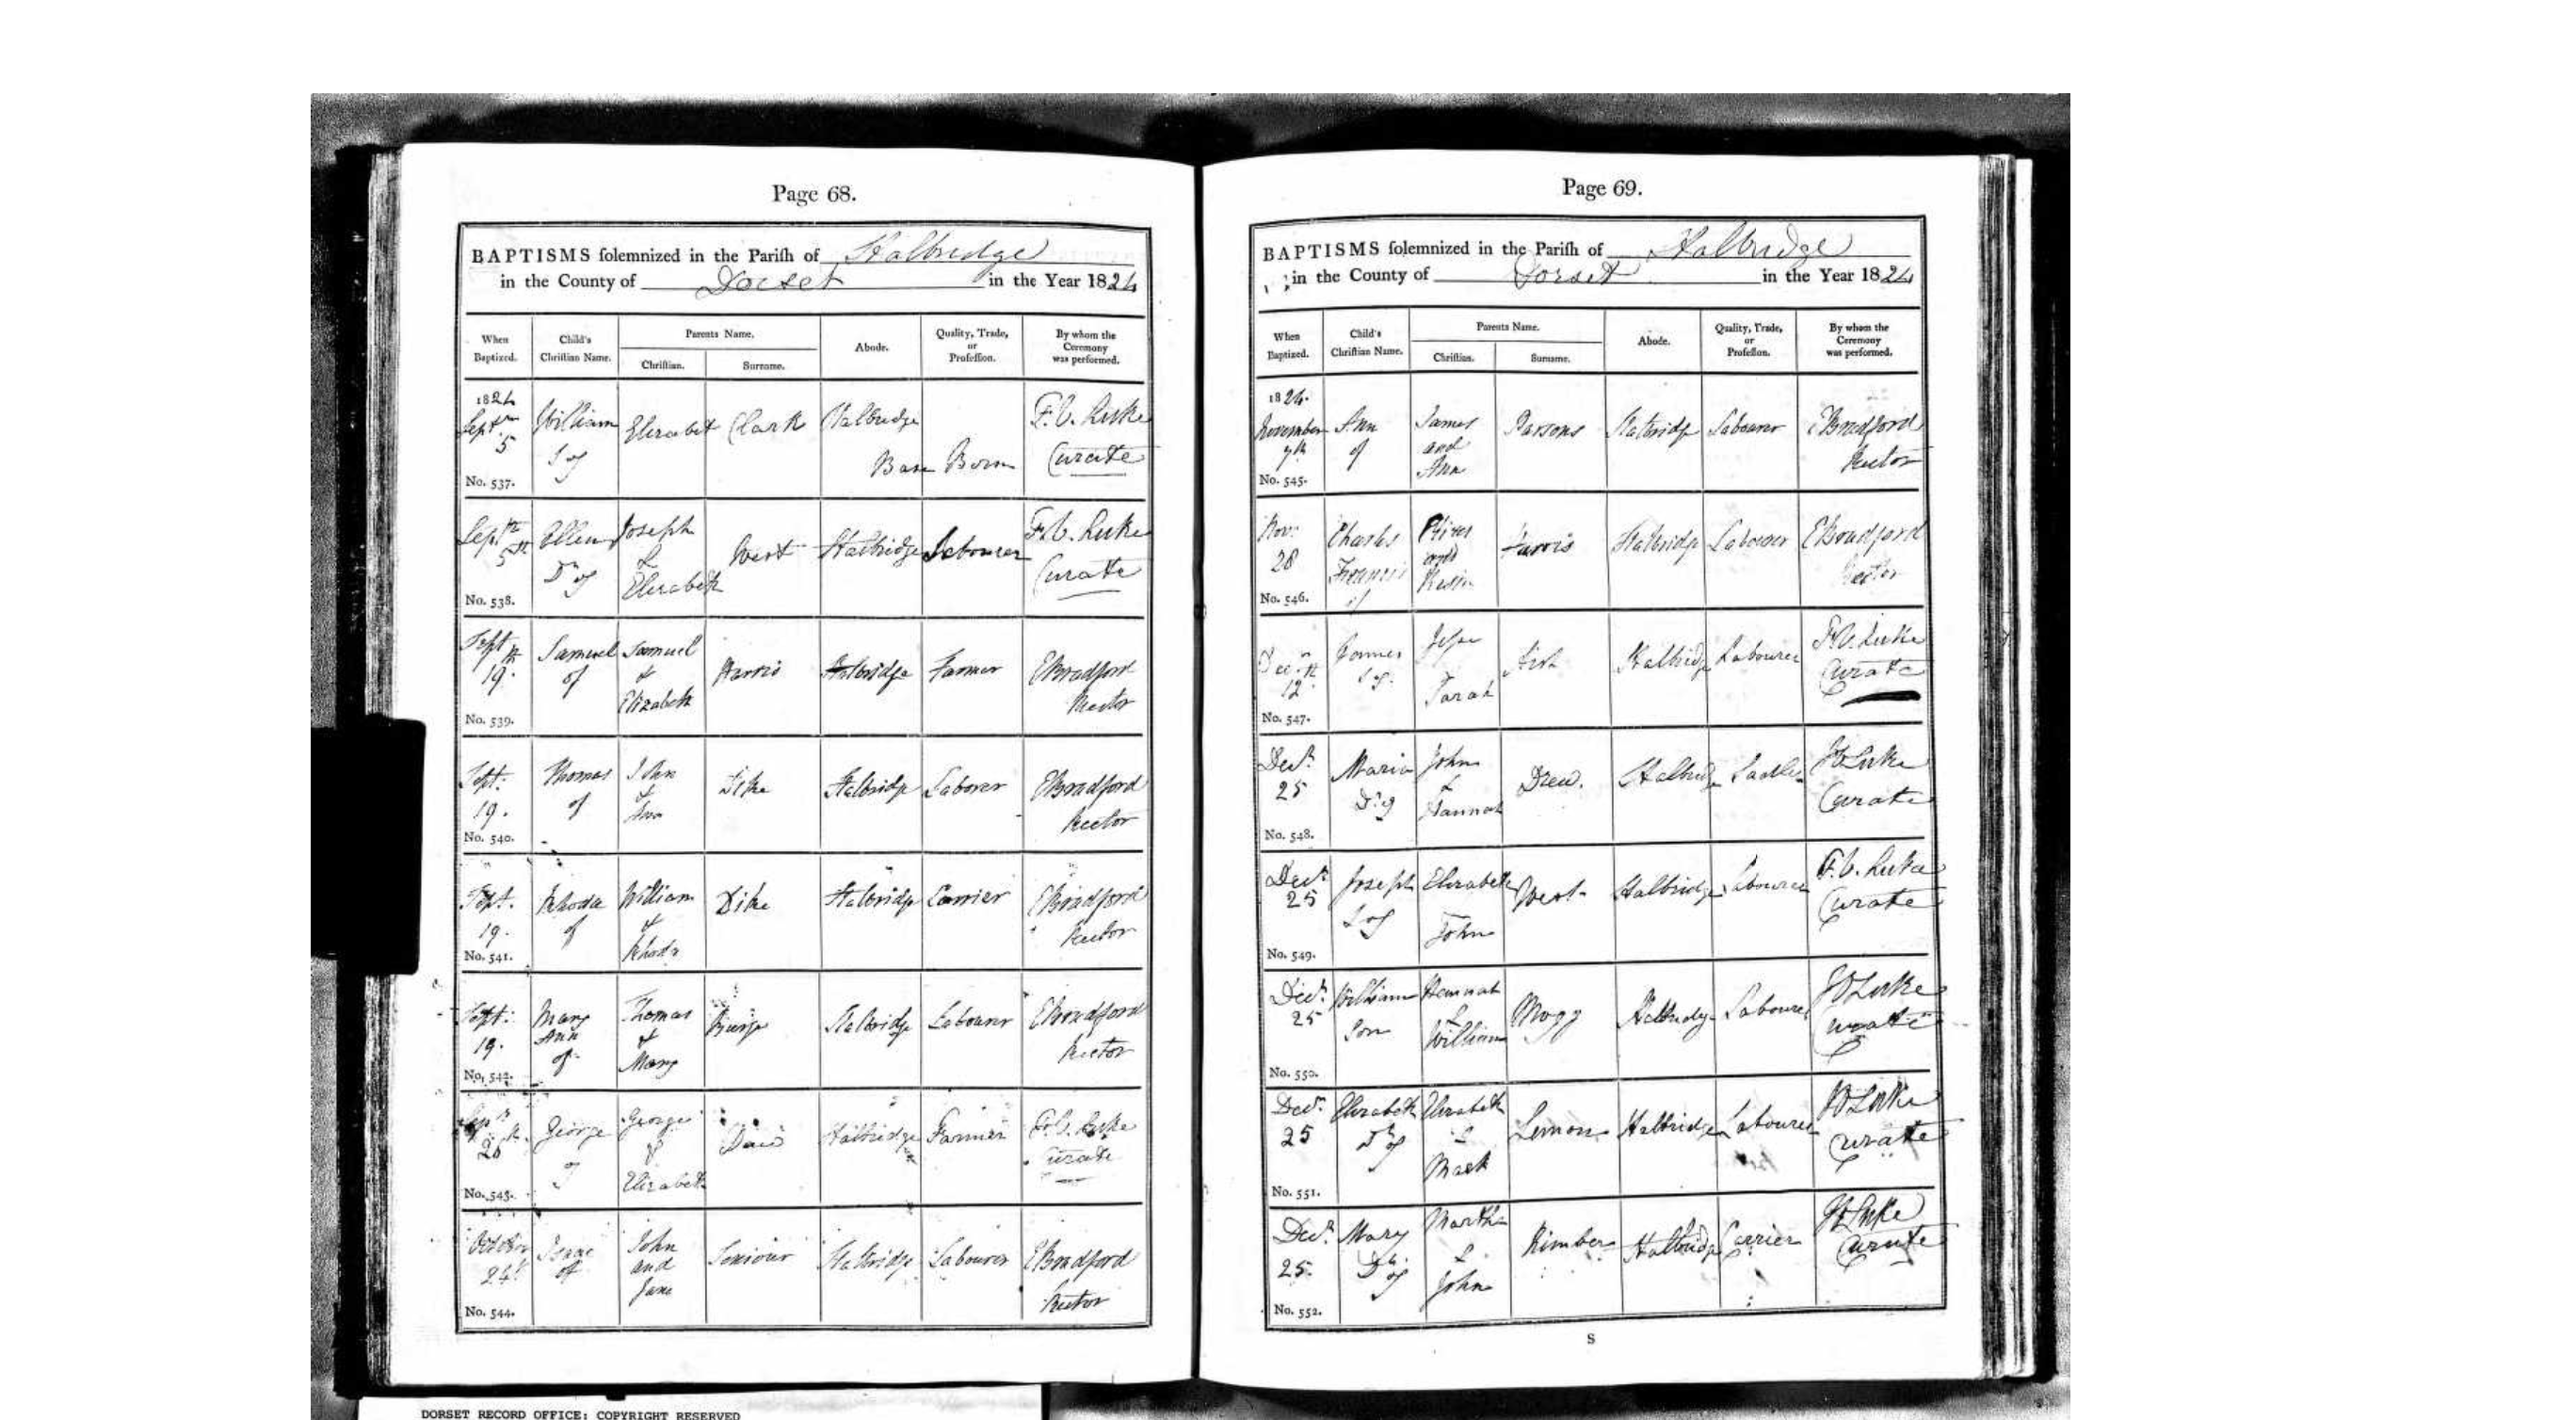 Page 68.
BAPTISMS solemnized in the Parish of Stalbridge
in the County of Dorset in the Year 1824
When Baptized. Child's Christian Name. Parents Name. Christian. Surname. Abode. Quality, Trade, or Profession. By whom the Ceremony was performed.
1824 Septm 5 No. 537. William S of Elizabet Clark Stalbridge Base Born F.C. Luke Curate
Septr 5th No. 538. Ellen Dr of Joseph & Elizabeth West Stalbridge Labourer F.C. Luke Curate
Sept 19th No. 539. Samuel of Samuel & Elizabeth Harris Stalbridge Farmer EBradford Rector
Sept. 19. No. 540. Thomas of John & Ann Dike Stalbridge Laborer EBradford Rector
Sept. 19. No. 541. Rhoda of William & Rhoda Dike Stalbridge Carrier EBradford Rector
Sept. 19. No. 542. Mary Ann of Thomas & Mary Stalbridge Labourer EBradford Rector
Sepr 26 No. 543. George of George & Elizabeth Stalbridge Farmer F.C. Luke Curate
October 24 No. 544. Isaac of John and Jane Stalbridge Labourer EBradford Rector
Page 69.
BAPTISMS solemnized in the Parish of Stalbridge
in the County of Dorset in the Year 1824
When Baptized. Child's Christian Name. Parents Name. Christian. Surname. Abode. Quality, Trade, or Profession. By whom the Ceremony was performed.
1824. November 7th No. 545. Ann of James and Ann Parsons Stalbridge Labourer EBradford Rector
Nov: 28 No. 546. Charles Francis of and Stalbridge Labourer EBradford Rector
Decr 12th No. 547. James S of Sarah Stalbridge Labourer F.C. Luke Curate
Decr 25 No. 548. Maria Dr of John & Hannah Drew. Stalbridge F C Luke Curate
Decr 25 No. 549. Joseph S of Elizabeth John West Stalbridge Labourer F.C. Luke Curate
Decr 25 No. 550. William Son Hannah & William Mogg Stalbridge Labourer F C Luke Curate
Decr 25 No. 551. Elizabeth Dr of Elizabeth & Mark Lemon Stalbridge Labourer F C Luke Curate
Decr 25 No. 552. Mary Dr of Martha & John Kimber Stalbridge Carrier F C Luke Curate
S
DORSET RECORD OFFICE: COPYRIGHT RESERVED